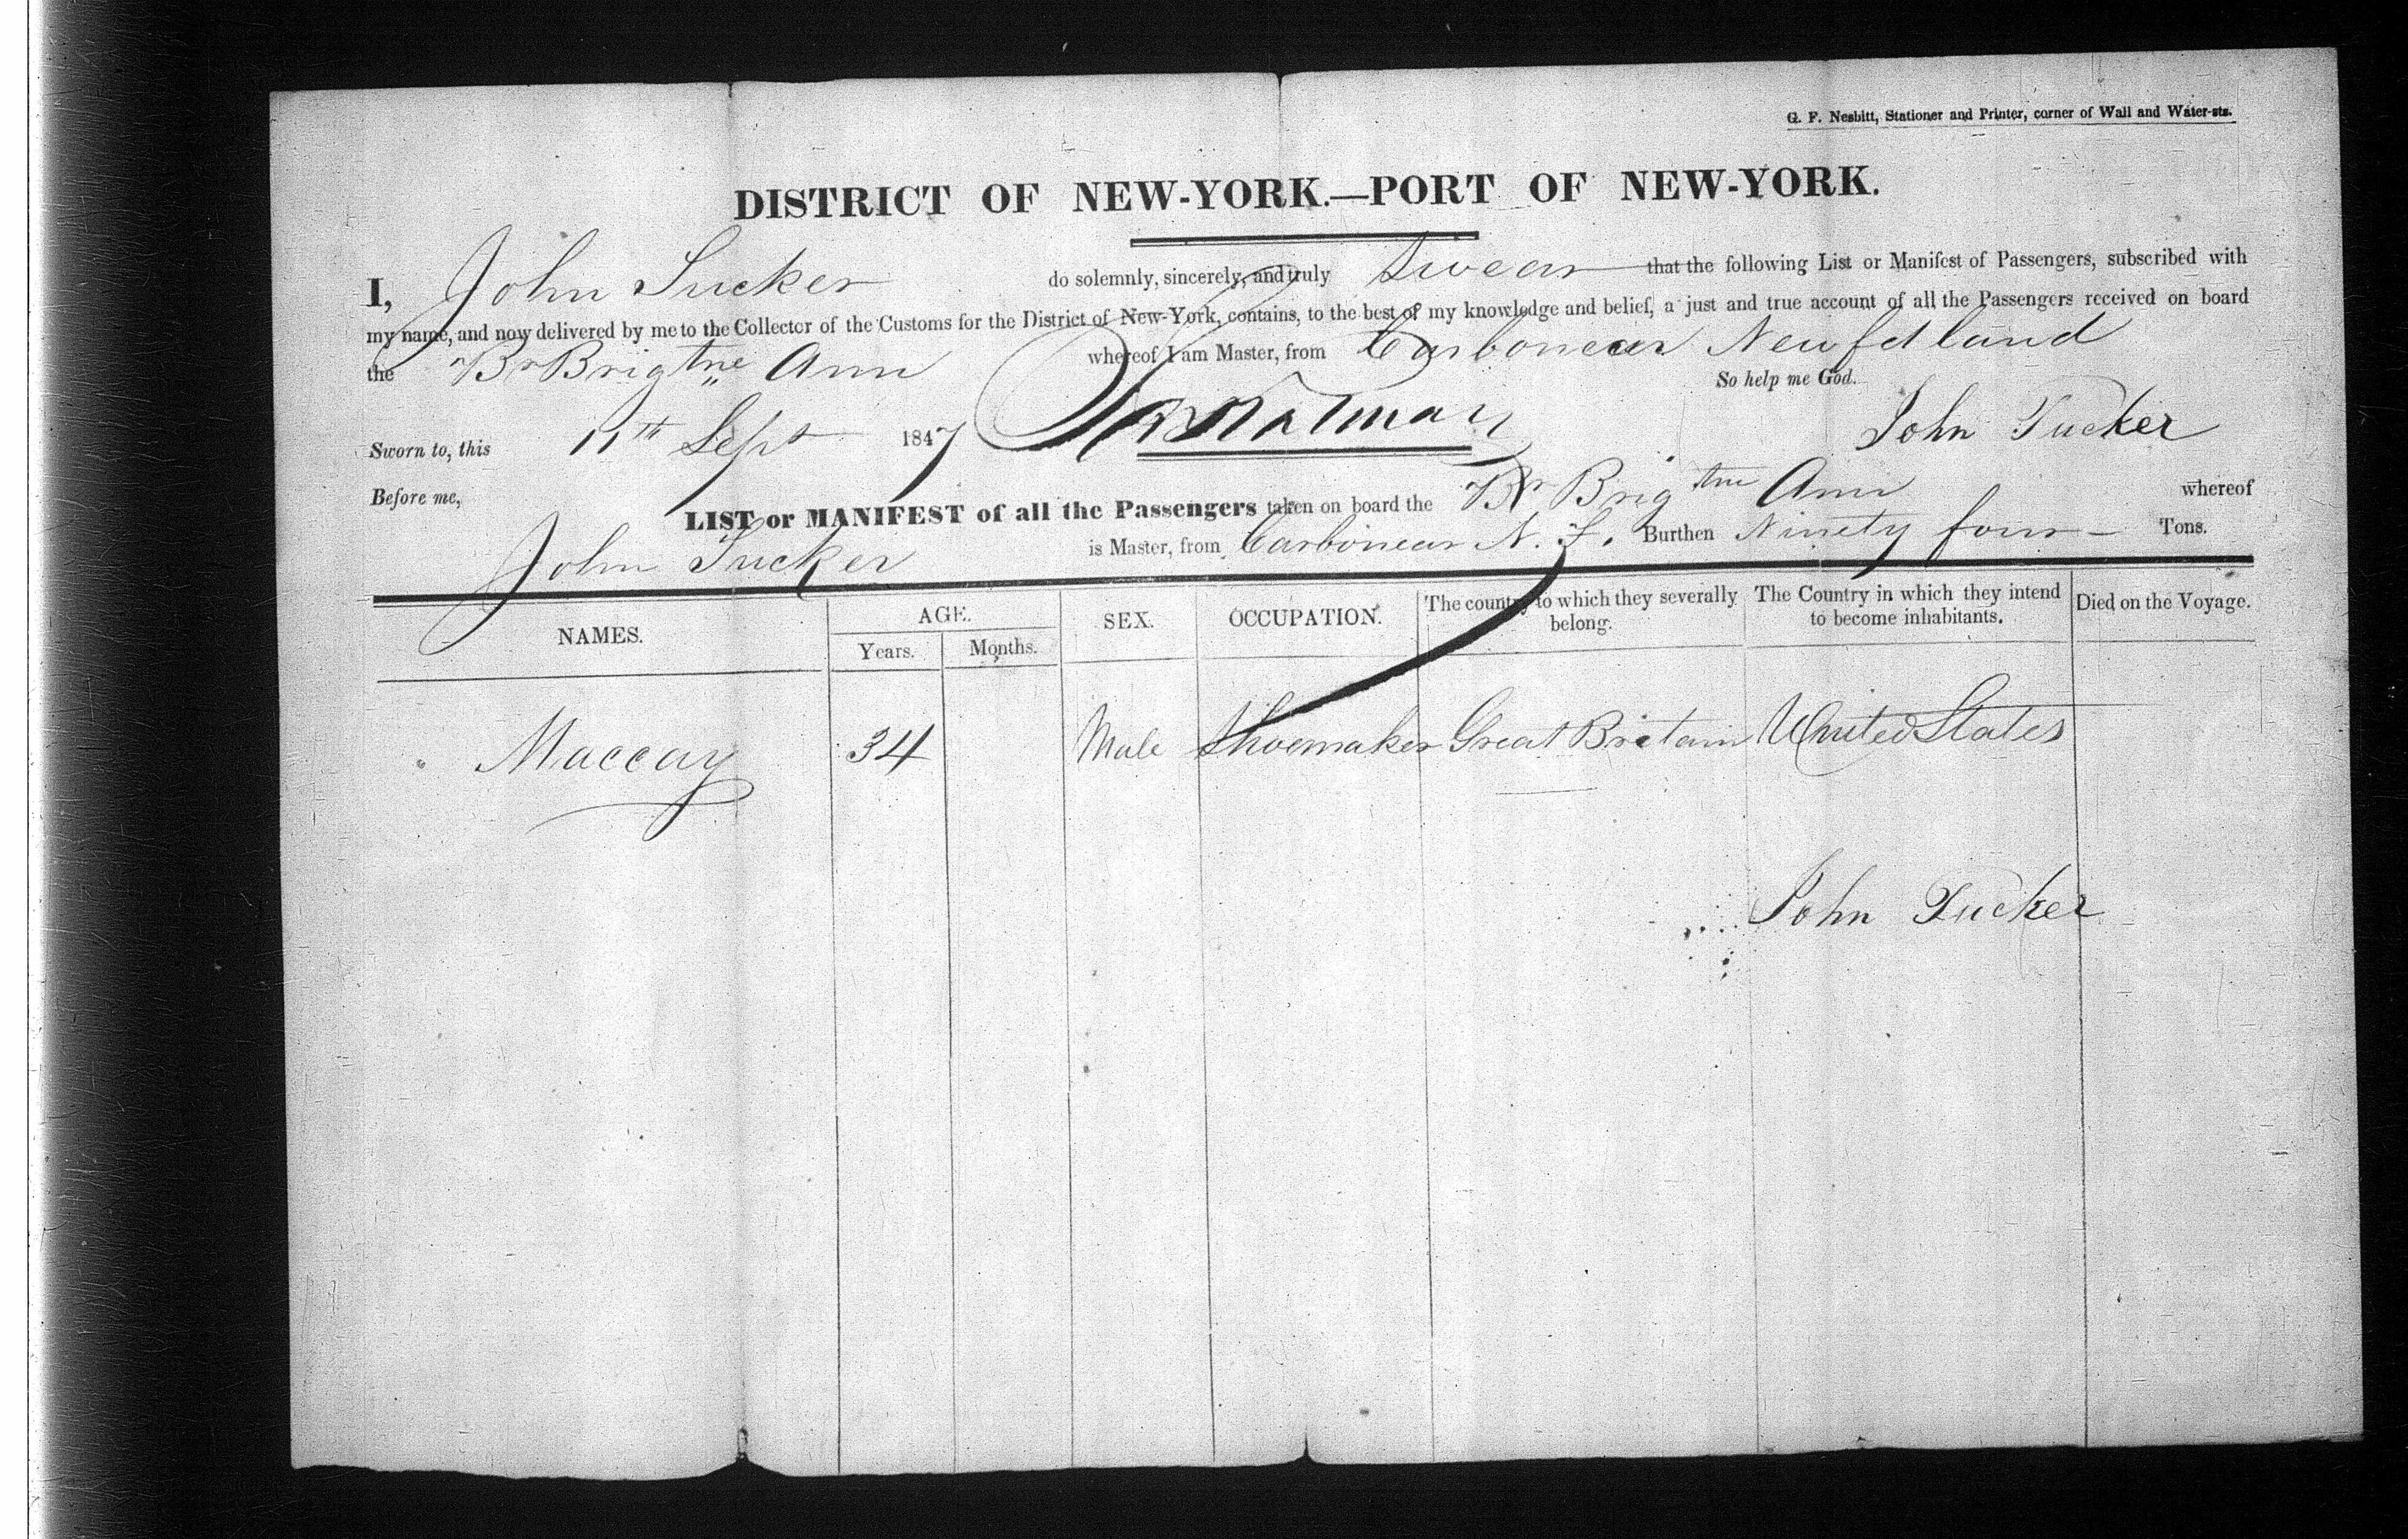 G. F. Nesbitt, Stationer and Printer, corner of Wall and Water-sts.
DISTRICT OF NEW-YORK.—PORT OF NEW-YORK.
I, John Tucker do solemnly, sincerely, and truly Swear that the following List or Manifest of Passengers, subscribed with
my name, and now delivered by me to the Collector of the Customs for the District of New-York, contains, to the best of my knowledge and belief, a just and true account of all the Passengers received on board
the Br Brigtne Ann whereof I am Master, from Carbonear Newfdland
So help me God.
Sworn to, this 11th Sept 1847 John Tucker
Before me,
LIST or MANIFEST of all the Passengers taken on board the Br Brigtne Ann whereof
John Tucker is Master, from Carbonear N. F. Burthen Ninety four - Tons.
NAMES. AGE. Years. Months. SEX. OCCUPATION. The country to which they severally belong. The Country in which they intend to become inhabitants. Died on the Voyage.
Maccay 34 Male Shoemaker Great Britain United States
John Tucker